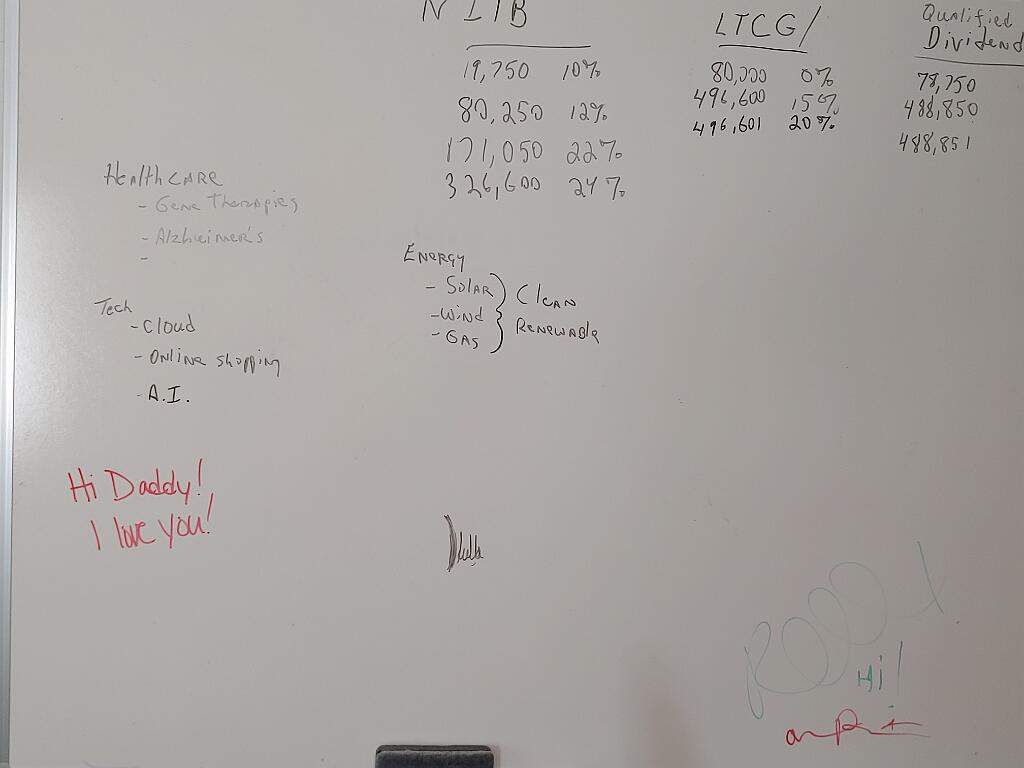 LTCG/
Qualified
Dividend
19,750 10%
80,250 12%
171,050 22%
326,600 24%
80,000 0%
496,600 15%
496,601 20%
78,750
488,850
488,851
HealthCARE
- Gene Therapies
- Alzheimer's
-
Tech
- Cloud
- Online shopping
- A.I.
Energy
- Solar
- Wind
- GAS
Clean
Renewable
Hi Daddy!
I love you!
Hi!